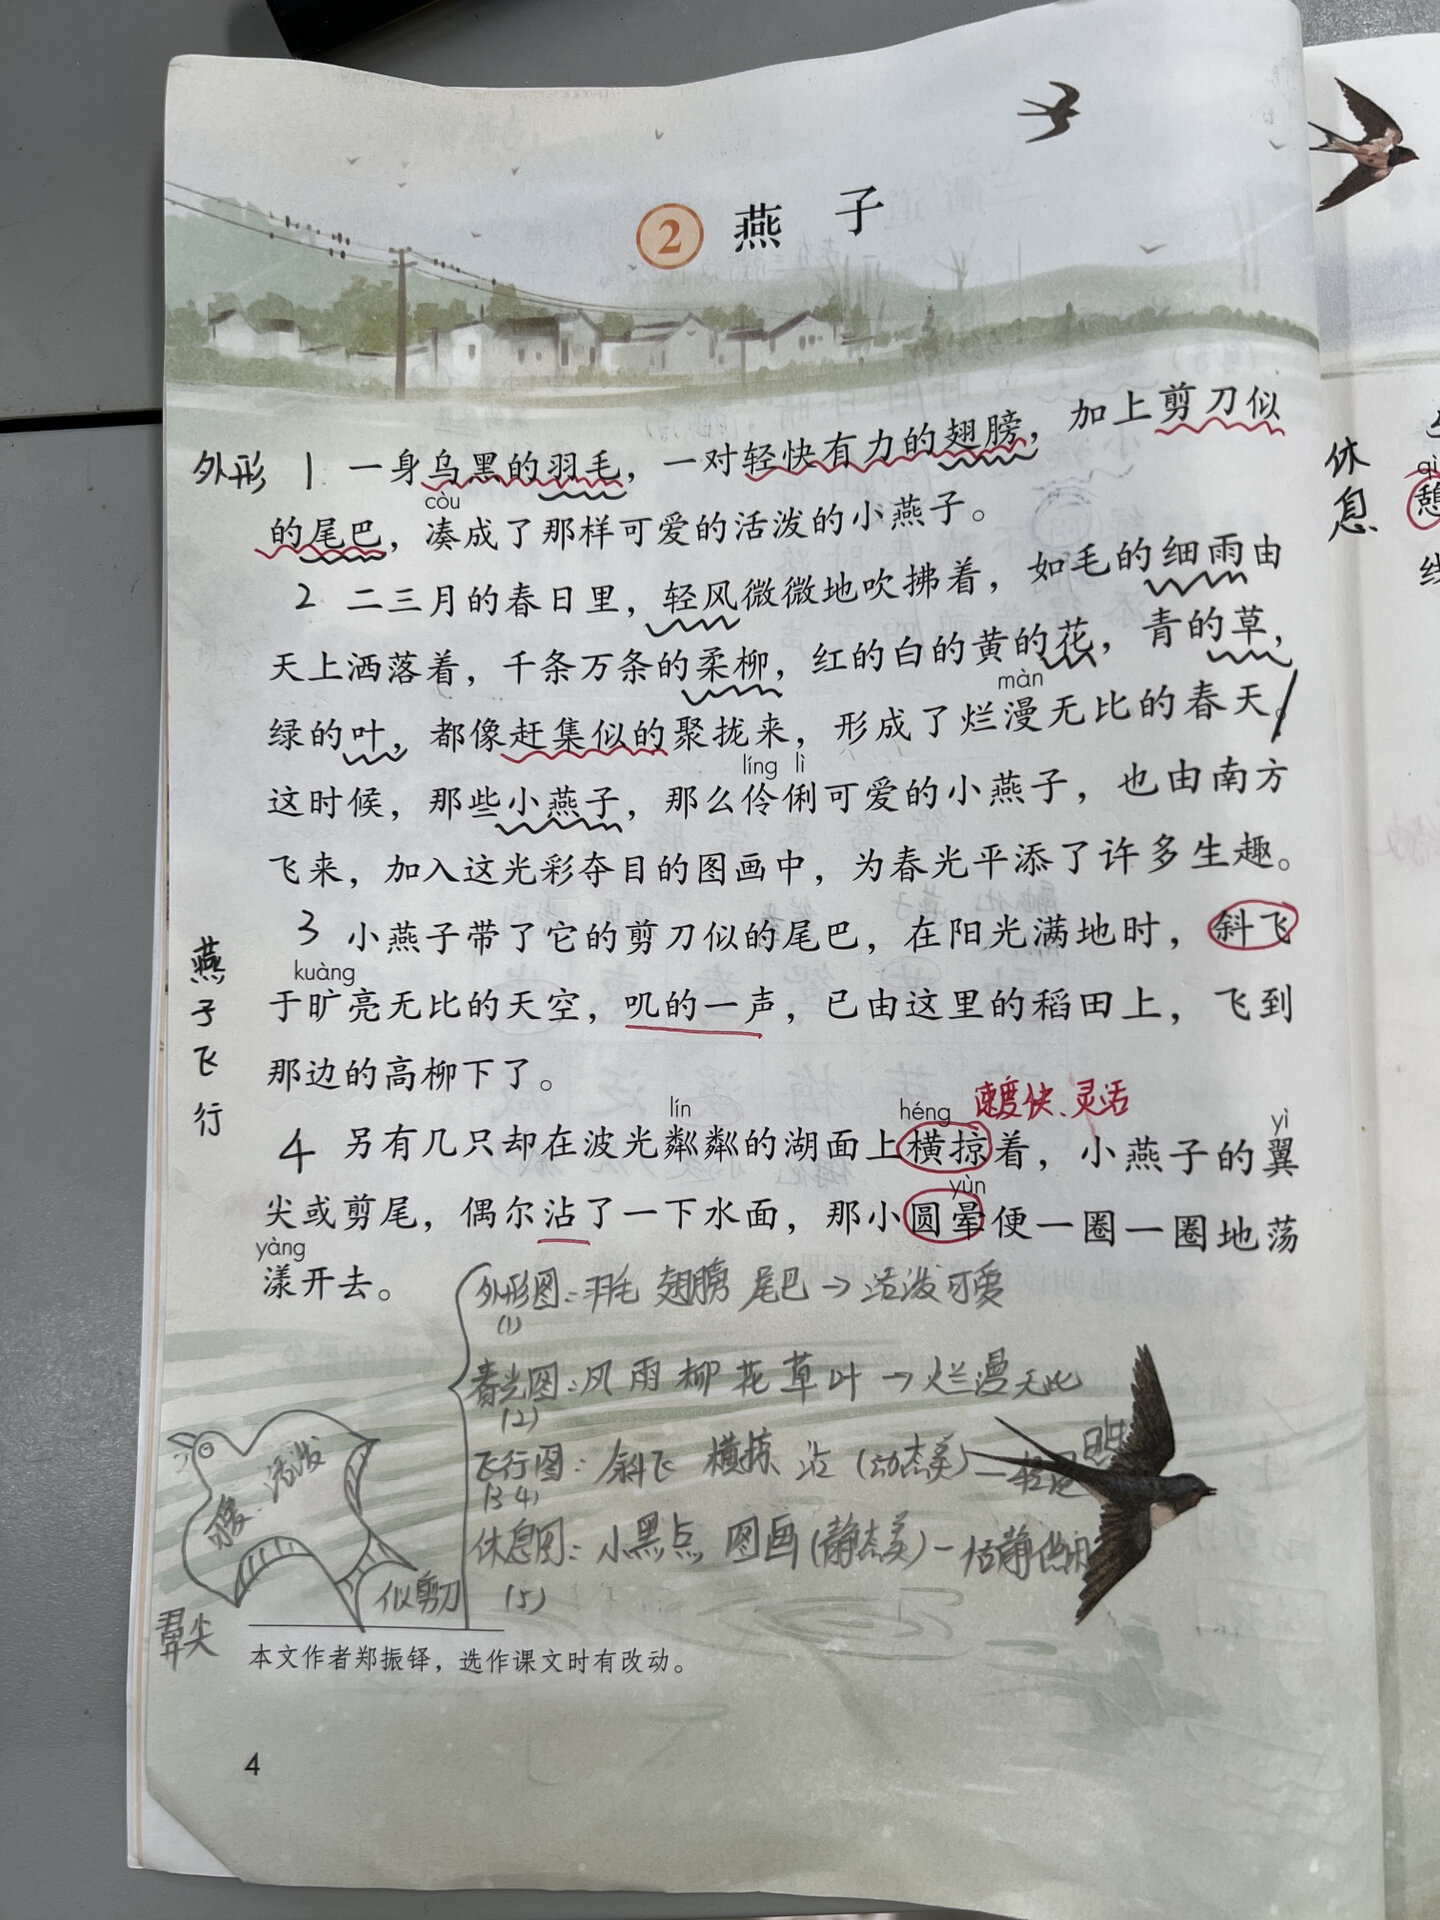 2 燕 子
外形 1 一身乌黑的羽毛，一对轻快有力的翅膀，加上剪刀似
còu
的尾巴，凑成了那样可爱的活泼的小燕子。
2 二三月的春日里，轻风微微地吹拂着，如毛的细雨由
天上洒落着，千条万条的柔柳，红的白的黄的花，青的草，
màn
绿的叶，都像赶集似的聚拢来，形成了烂漫无比的春天。
líng lì
这时候，那些小燕子，那么伶俐可爱的小燕子，也由南方
飞来，加入这光彩夺目的图画中，为春光平添了许多生趣。
燕子飞行
3 小燕子带了它的剪刀似的尾巴，在阳光满地时，斜飞
kuàng
于旷亮无比的天空，叽的一声，已由这里的稻田上，飞到
那边的高柳下了。
速度快、灵活
lín héng yì
4 另有几只却在波光粼粼的湖面上横掠着，小燕子的翼
yùn
尖或剪尾，偶尔沾了一下水面，那小圆晕便一圈一圈地荡
yàng
漾开去。
外形图：羽毛 翅膀 尾巴→活泼可爱
(1)
春光图：风 雨 柳 花 草 叶→烂漫无比
(2)
飞行图：斜飞 横掠 沾（动态美）—
(3 4)
休息图：小黑点 图画（静态美）—恬静
(5)
可爱、活泼
似剪刀
尖
本文作者郑振铎，选作课文时有改动。
4
休息
qì
憩